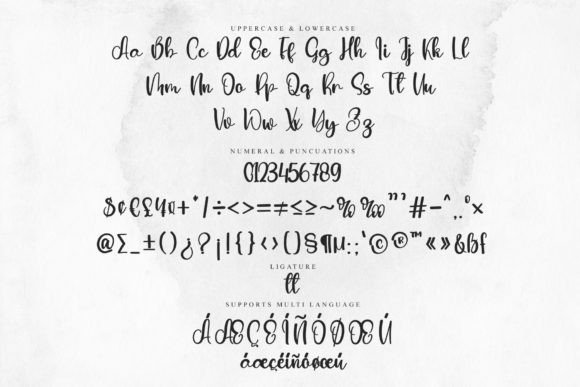 UPPERCASE & LOWERCASE
Aa Bb Cc Dd Ee Ff Gg Hh Ii Jj Kk Ll
Mm Nn Oo Pp Qq Rr Ss Tt Uu
Vv Ww Xx Yy Zz
NUMERAL & PUNCUATIONS
0123456789
$¢€£¥¤+*/÷<>=≠≤≥~%‰"'#-^,.°×
@∑_±()¿?¡!{}‹›()§¶µ:;‘©®™«»&ßf
LIGATURE
tt
SUPPORTS MULTI LANGUAGE
ÁÆÇÉÍÑÓØŒÚ
áæçéíñóøœú